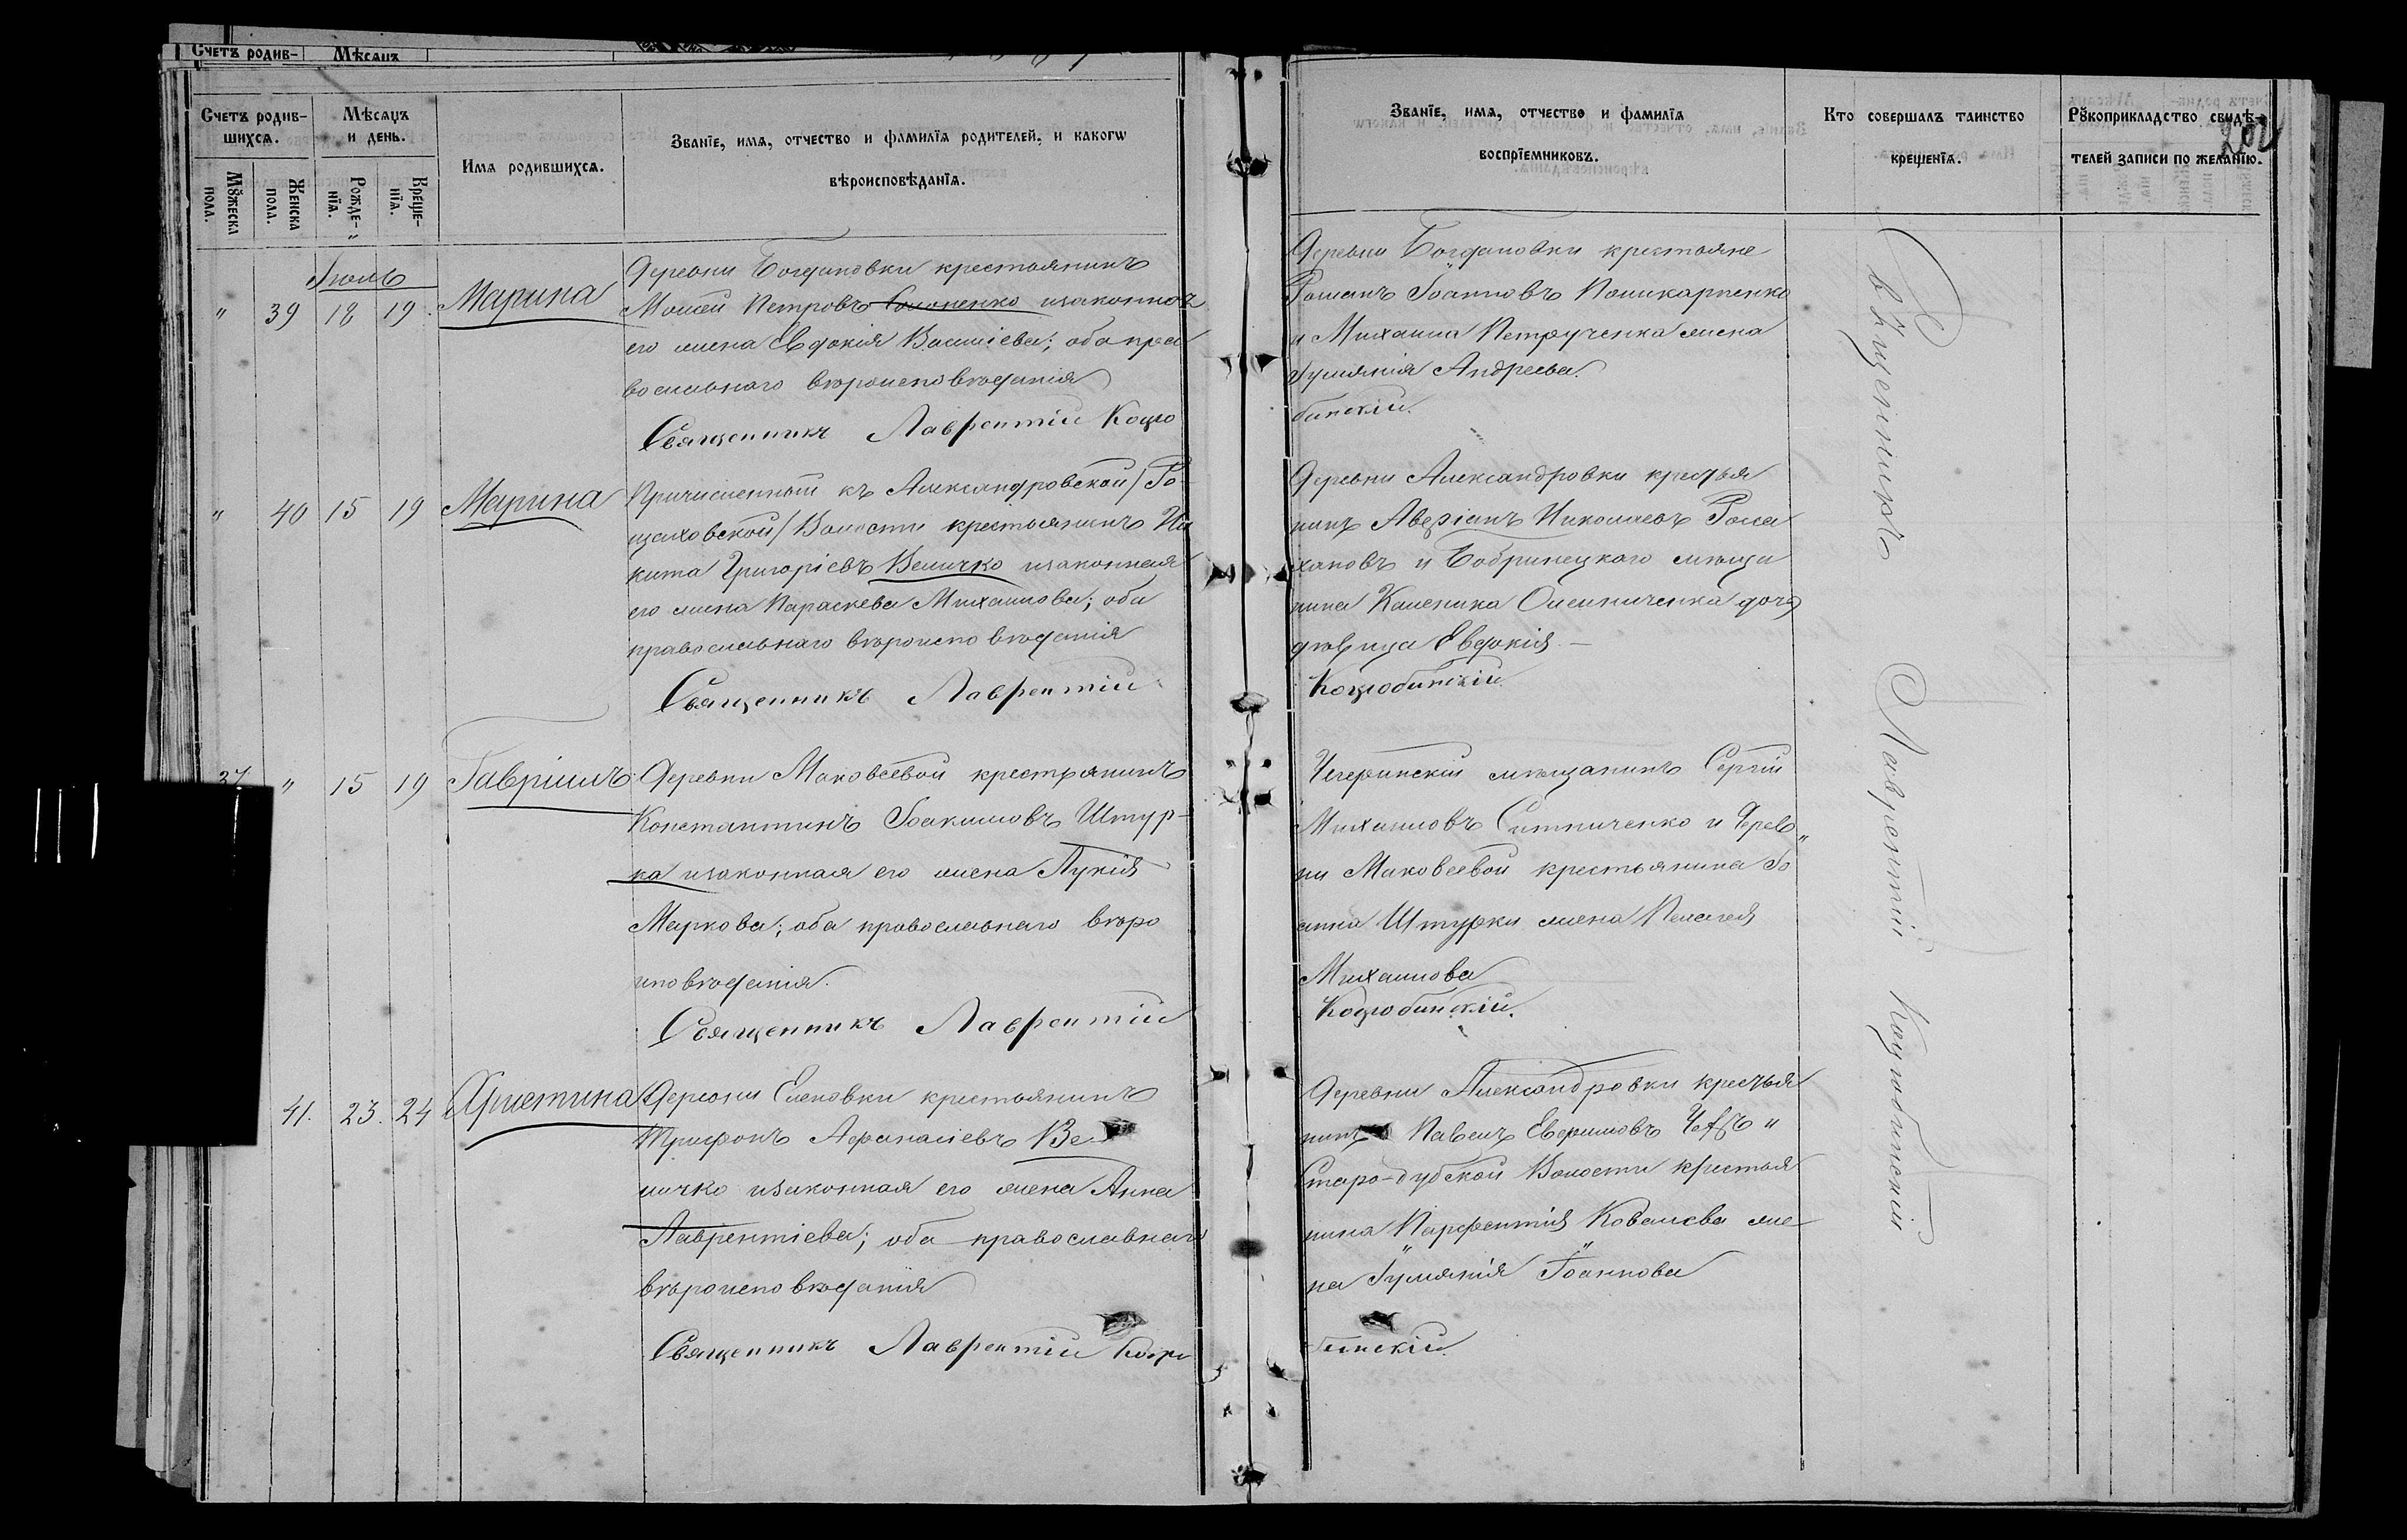 Счетъ родив-
Мѣсяцъ
Счетъ родив-
шихсѧ.
Мѣсяцъ
и день.
Мꙋжеска
пола.
Женска
пола.
Рожде-
нїѧ.
Креще-
нїѧ.
Имѧ родившихсѧ.
Званїе, имѧ, отчество и фамилїѧ родителей, и какогѡ
вѣроисповѣданїѧ.
Званїе, имѧ, отчество и фамилїѧ
воспрїемниковъ.
Кто совершалъ таинство
крещенїѧ.
Рꙋкоприкладство свидѣ-
телей записи по желанїю.
202
Іюль
" 39 18 19. Марина
Деревни Богдановки крестьянинъ
Моисей Петровъ изаконная
его жена Евдокія Василіева; оба пра
вославнаго вѣроисповѣданія
Священникъ Лаврентій Коцю
Деревни Богдановки крестьяне
Романъ Іоанновъ Поликарпенко
и Михаила Петрученка жена
Іуліянія Андреева.
бинскій.
" 40 15 19 Марина
Причисленный къ Александровской / Ро-
щаховской / Волости крестьянинъ Ни
кита Григоріевъ Величко изаконная
его жена Параскева Михаилова; оба
православнаго вѣроисповѣданія
Священникъ Лаврентій
Деревни Александровки крестья
нинъ Аверіанъ Николаевъ Рома
хановъ и Бобринецкаго мѣща
нина Калиника Олейниченка дочь
дѣвица Евдокія. —
Коцюбинскій.
37 " 15 19 Гавріилъ
Деревни Маковеевой крестьянинъ
Константинъ Іоакимовъ Штур-
ка изаконная его жена Лукія
Маркова; оба православнаго вѣро
исповѣданія.
Священникъ Лаврентій
Чигиринскій мѣщанинъ Сергій
Михаиловъ Ситниченко и Дерев
ни Маковеевой крестьянина Іо
анна Штурки жена Пелагея
Михаилова
Коцюбинскій.
41. 23. 24 Христина
Деревни Еленовки крестьянинъ
Трифонъ Афанасіевъ Ве-
личко изаконная его жена Анна
Лаврентіева; оба православнаго
вѣроисповѣданія
Священникъ Лаврентій Коцю
Деревни Александровки крестья
нинъ Павелъ Евфимовъ и
Старо-дубской Волости крестья
нина Парфентія Ковалева же
на Іуліянія Іоаннова
бинскій.
Священникъ Лаврентій Коцюбинскій